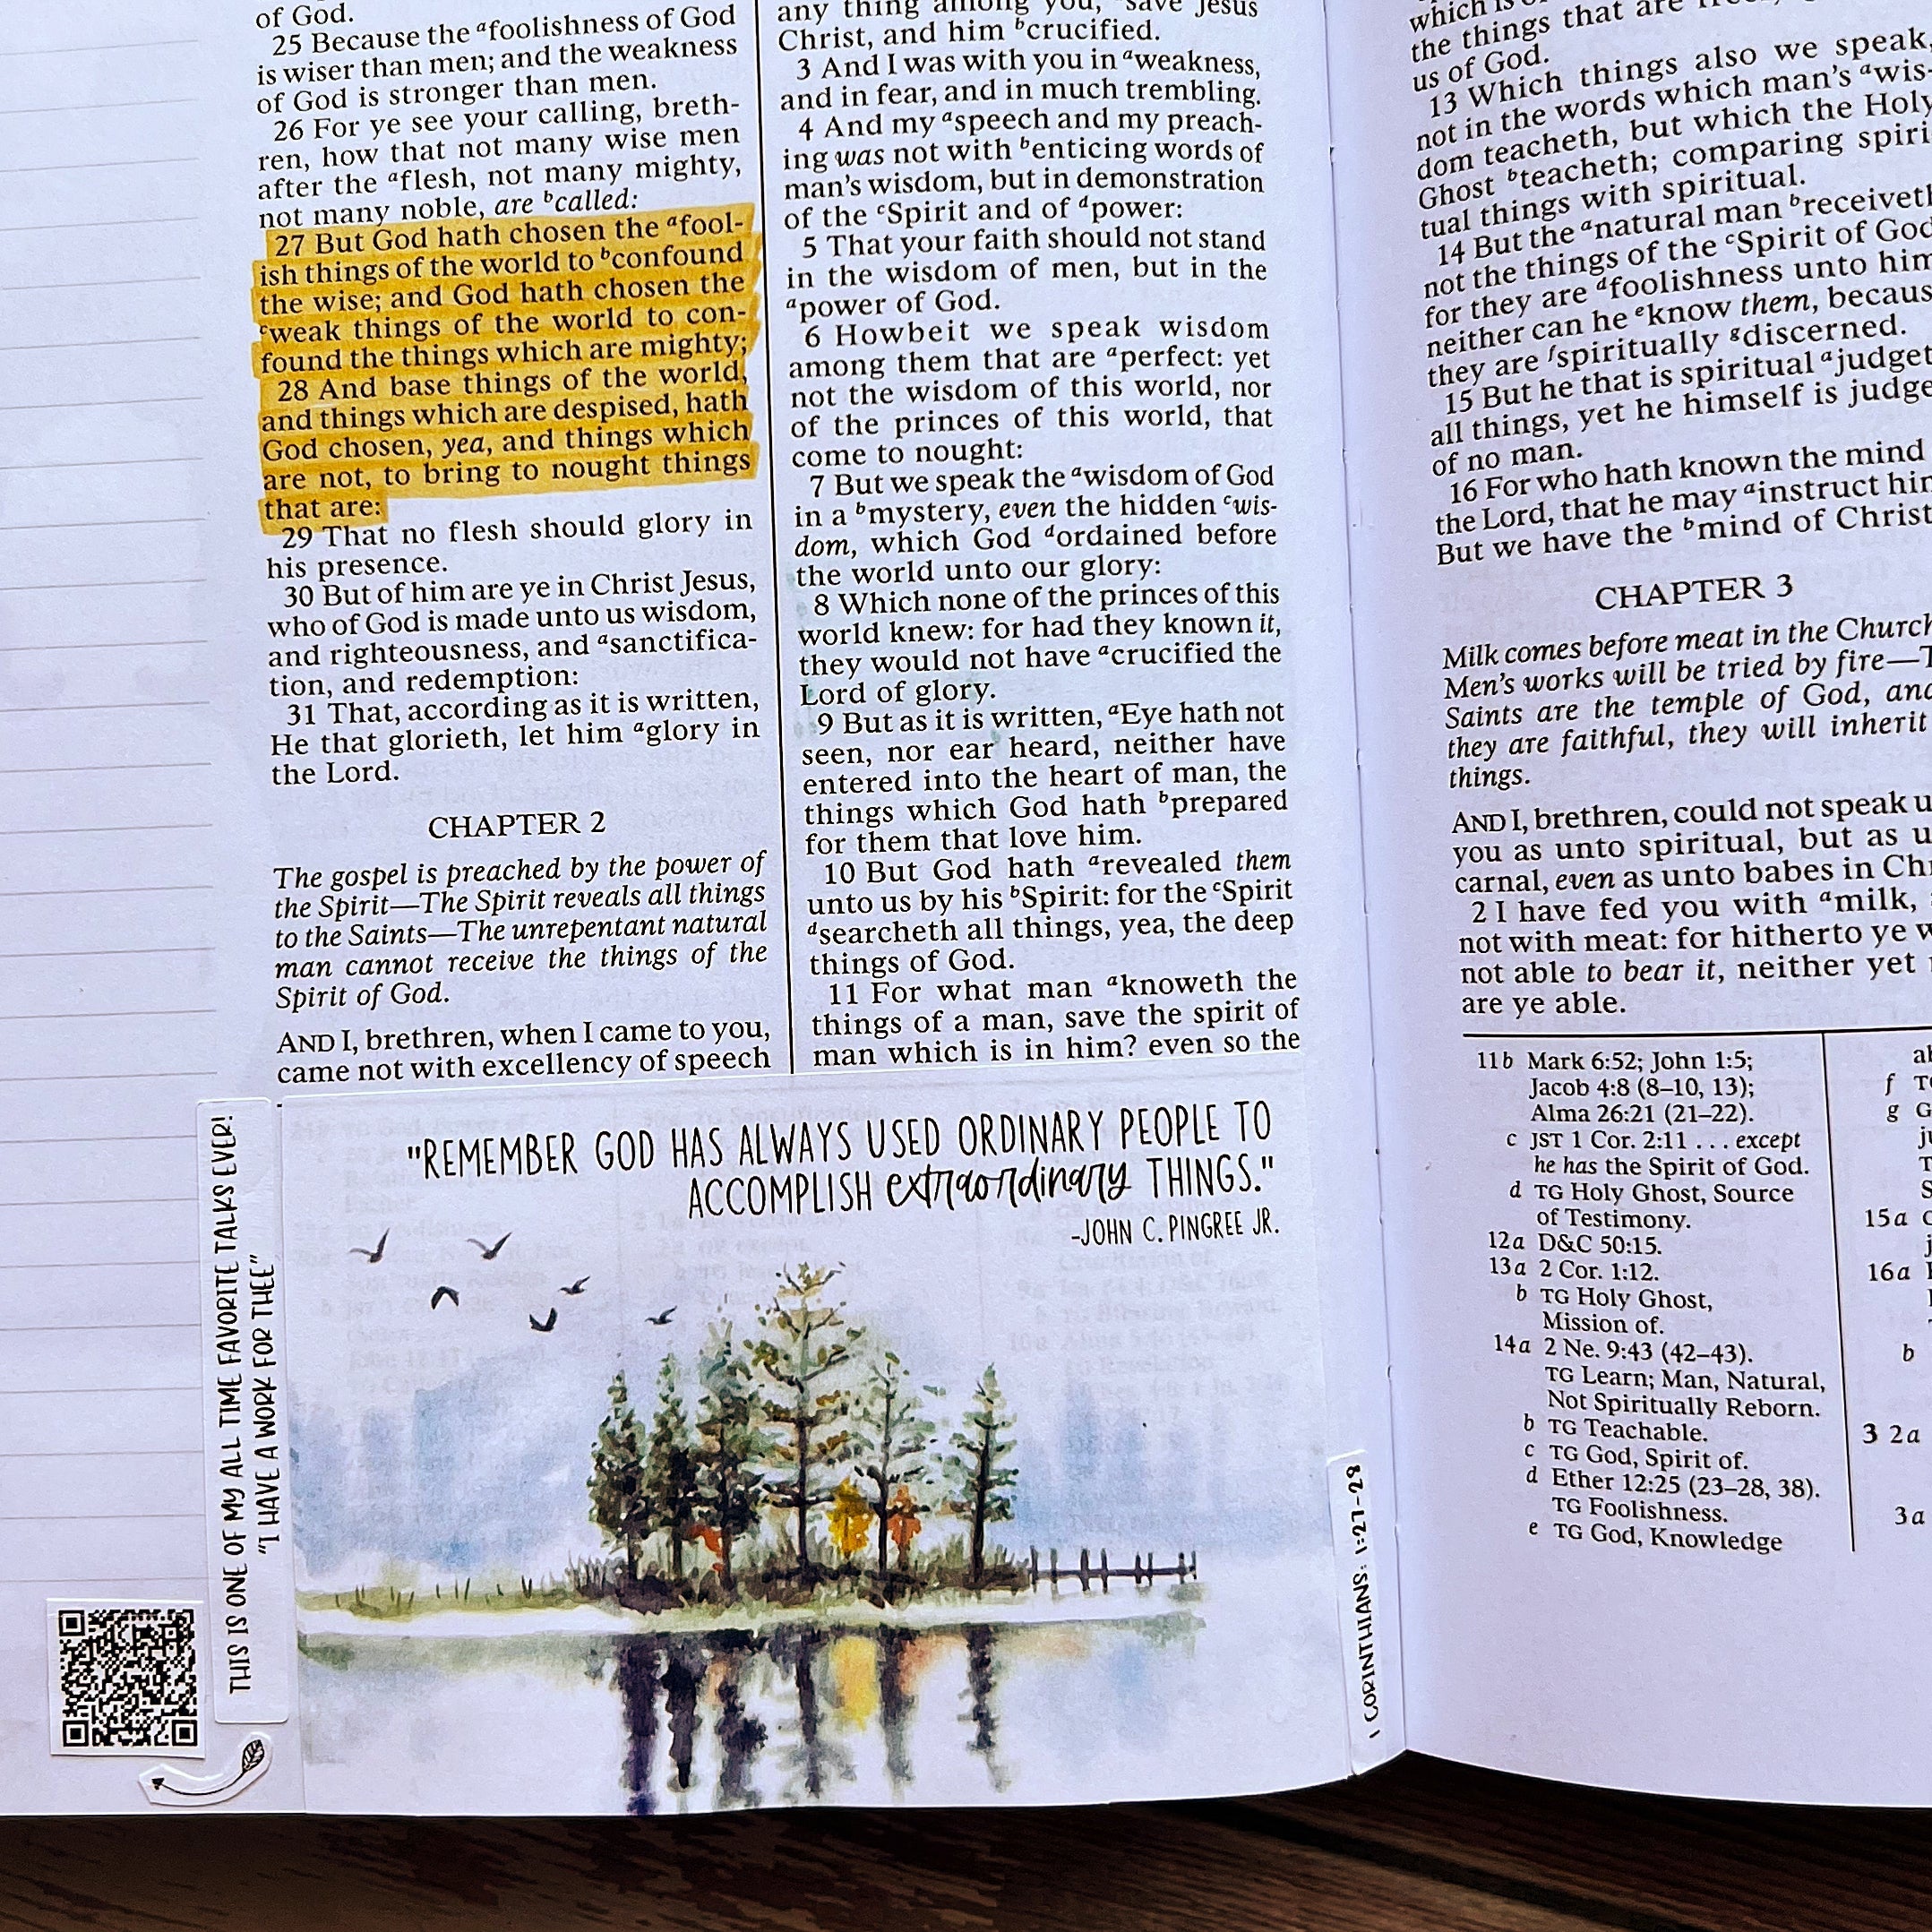 of God.
25 Because the ᵃfoolishness of God
is wiser than men; and the weakness
of God is stronger than men.
26 For ye see your calling, breth-
ren, how that not many wise men
after the ᵃflesh, not many mighty,
not many noble, are ᵇcalled:
27 But God hath chosen the ᵃfool-
ish things of the world to ᵇconfound
the wise; and God hath chosen the
ᶜweak things of the world to con-
found the things which are mighty;
28 And base things of the world,
and things which are despised, hath
God chosen, yea, and things which
are not, to bring to nought things
that are:
29 That no flesh should glory in
his presence.
30 But of him are ye in Christ Jesus,
who of God is made unto us wisdom,
and righteousness, and ᵃsanctifica-
tion, and redemption:
31 That, according as it is written,
He that glorieth, let him ᵃglory in
the Lord.
CHAPTER 2
The gospel is preached by the power of
the Spirit—The Spirit reveals all things
to the Saints—The unrepentant natural
man cannot receive the things of the
Spirit of God.
AND I, brethren, when I came to you,
came not with excellency of speech
any thing among you, ᵃsave Jesus
Christ, and him ᵇcrucified.
3 And I was with you in ᵃweakness,
and in fear, and in much trembling.
4 And my ᵃspeech and my preach-
ing was not with ᵇenticing words of
man's wisdom, but in demonstration
of the ᶜSpirit and of ᵈpower:
5 That your faith should not stand
in the wisdom of men, but in the
ᵃpower of God.
6 Howbeit we speak wisdom
among them that are ᵃperfect: yet
not the wisdom of this world, nor
of the princes of this world, that
come to nought:
7 But we speak the ᵃwisdom of God
in a ᵇmystery, even the hidden ᶜwis-
dom, which God ᵈordained before
the world unto our glory:
8 Which none of the princes of this
world knew: for had they known it,
they would not have ᵃcrucified the
Lord of glory.
9 But as it is written, ᵃEye hath not
seen, nor ear heard, neither have
entered into the heart of man, the
things which God hath ᵇprepared
for them that love him.
10 But God hath ᵃrevealed them
unto us by his ᵇSpirit: for the ᶜSpirit
ᵈsearcheth all things, yea, the deep
things of God.
11 For what man ᵃknoweth the
things of a man, save the spirit of
man which is in him? even so the
"REMEMBER GOD HAS ALWAYS USED ORDINARY PEOPLE TO
ACCOMPLISH extraordinary THINGS."
-JOHN C. PINGREE JR.
THIS IS ONE OF MY ALL TIME FAVORITE TALKS EVER!
"I HAVE A WORK FOR THEE"
1 CORINTHIANS: 1:27-28
which is
the things that are
us of God.
13 Which things also we speak,
not in the words which man's ᵃwis-
dom teacheth, but which the Holy
Ghost ᵇteacheth; comparing spiri
tual things with spiritual.
14 But the ᵃnatural man ᵇreceivet
not the things of the ᶜSpirit of God
for they are ᵈfoolishness unto him
neither can he ᵉknow them, becaus
they are ᶠspiritually ᵍdiscerned.
15 But he that is spiritual ᵃjudget
all things, yet he himself is judge
of no man.
16 For who hath known the mind
the Lord, that he may ᵃinstruct hin
But we have the ᵇmind of Christ
CHAPTER 3
Milk comes before meat in the Church
Men's works will be tried by fire—T
Saints are the temple of God, and
they are faithful, they will inherit
things.
AND I, brethren, could not speak u
you as unto spiritual, but as u
carnal, even as unto babes in Chr
2 I have fed you with ᵃmilk,
not with meat: for hitherto ye w
not able to bear it, neither yet
are ye able.
11b Mark 6:52; John 1:5;
Jacob 4:8 (8–10, 13);
Alma 26:21 (21–22).
c JST 1 Cor. 2:11 . . . except
he has the Spirit of God.
d TG Holy Ghost, Source
of Testimony.
12a D&C 50:15.
13a 2 Cor. 1:12.
b TG Holy Ghost,
Mission of.
14a 2 Ne. 9:43 (42–43).
TG Learn; Man, Natural,
Not Spiritually Reborn.
b TG Teachable.
c TG God, Spirit of.
d Ether 12:25 (23–28, 38).
TG Foolishness.
e TG God, Knowledge
f
g G
15a
16a
b
3 2a
3a